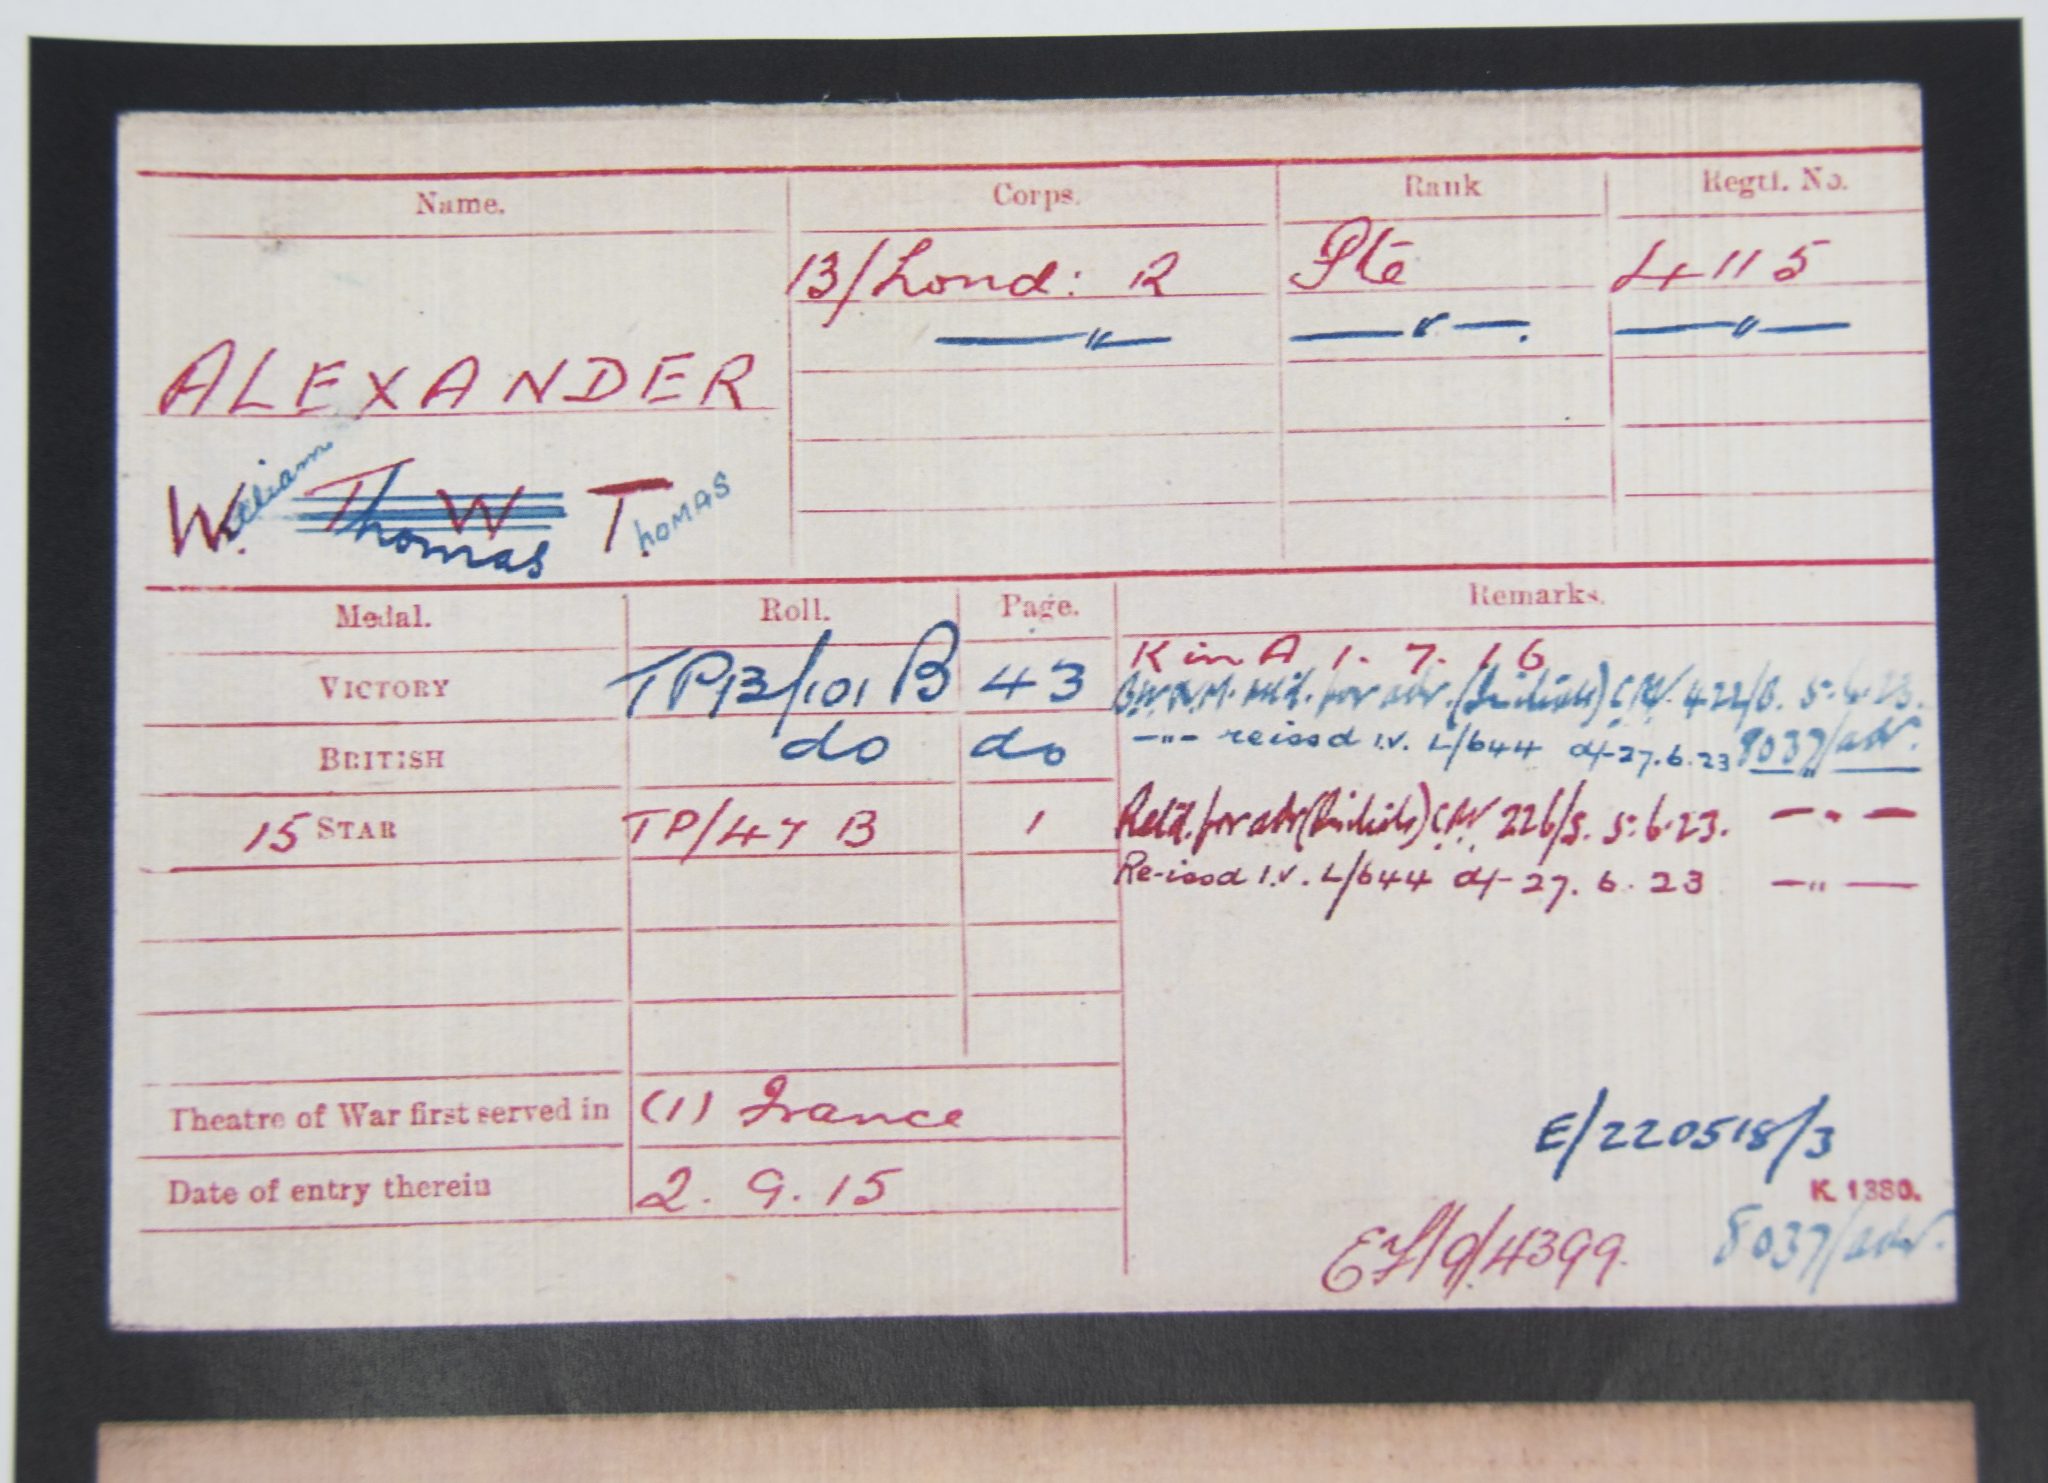 Name. Corps. Rank Regtl. No.
13/Lond: R Pte 4115
—"— —"—. —"—
ALEXANDER
William Thomas W Thomas
Medal. Roll. Page. Remarks.
VICTORY TP13/101 B 43 K in A 1.7.16
B.W.V.M. retd. for adr. (Initials) C.R.V. 422/B. 5.6.23.
BRITISH do do -"- reissd I.V. L/644 d/- 27.6.23 8037/adr.
15 STAR TP/47 B 1 Retd. for adr (Initials) C.R.V. 226/S. 5.6.23. —"—
Re-issd I.V. L/644 d/- 27.6.23 —"—
Theatre of War first served in (1) France
Date of entry therein 2.9.15
E/220518/3
K. 1380.
EF/9/4399. 8037/adr.